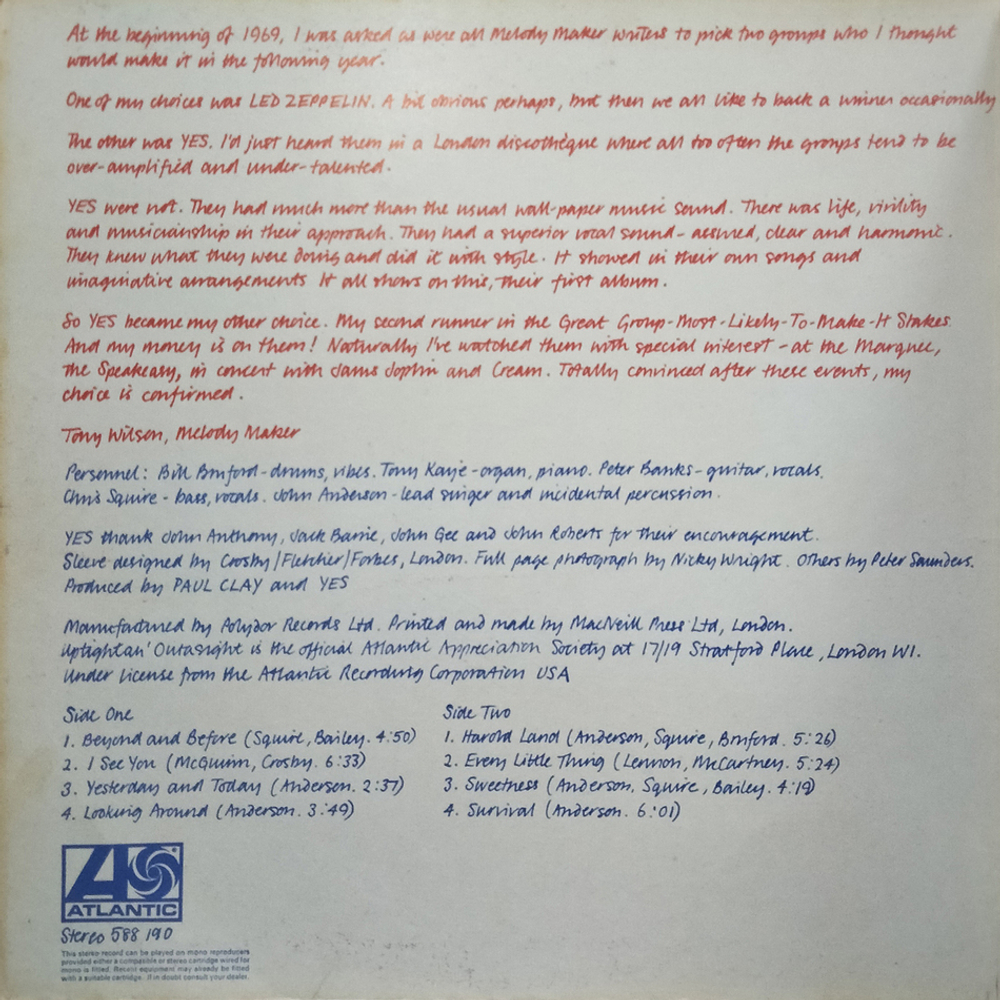 At the beginning of 1969, I was asked as were all Melody Maker writers to pick two groups who I thought
would make it in the following year.
One of my choices was LED ZEPPELIN. A bit obvious perhaps, but then we all like to back a winner occasionally
The other was YES. I'd just heard them in a London discothèque where all too often the groups tend to be
over-amplified and under-talented.
YES were not. They had much more than the usual wall-paper music sound. There was life, virility
and musicianship in their approach. They had a superior vocal sound - assured, clear and harmonic.
They knew what they were doing and did it with style. It showed in their own songs and
imaginative arrangements It all shows on this, their first album.
So YES became my other choice. My second runner in the Great Group-Most-Likely-To-Make-It Stakes.
And my money is on them! Naturally I've watched them with special interest - at the Marquee,
the Speakeasy, in concert with Janis Joplin and Cream. Totally convinced after these events, my
choice is confirmed.
Tony Wilson, Melody Maker
Personnel: Bill Bruford - drums, vibes. Tony Kaye - organ, piano. Peter Banks - guitar, vocals.
Chris Squire - bass, vocals. John Anderson - lead singer and incidental percussion.
YES thank John Anthony, Jack Barrie, John Gee and John Roberts for their encouragement.
Sleeve designed by Crosby/Fletcher/Forbes, London. Full page photograph by Nicky Wright. Others by Peter Saunders.
Produced by PAUL CLAY and YES
Manufactured by Polydor Records Ltd. Printed and made by MacNeill Press Ltd, London.
Uptight an' Outasight is the official Atlantic Appreciation Society at 17/19 Stratford Place, London W1.
Under license from the Atlantic Recording Corporation USA
Side One
1. Beyond and Before (Squire, Bailey. 4:50)
2. I See You (McGuinn, Crosby. 6:33)
3. Yesterday and Today (Anderson. 2:37)
4. Looking Around (Anderson. 3:49)
Side Two
1. Harold Land (Anderson, Squire, Bruford. 5:26)
2. Every Little Thing (Lennon, McCartney. 5:24)
3. Sweetness (Anderson, Squire, Bailey. 4:19)
4. Survival (Anderson. 6:01)
ATLANTIC
Stereo 588 190
This stereo record can be played on mono reproducers
provided either a compatible or stereo cartridge wired for
mono is fitted. Recent equipment may already be fitted
with a suitable cartridge. If in doubt consult your dealer.